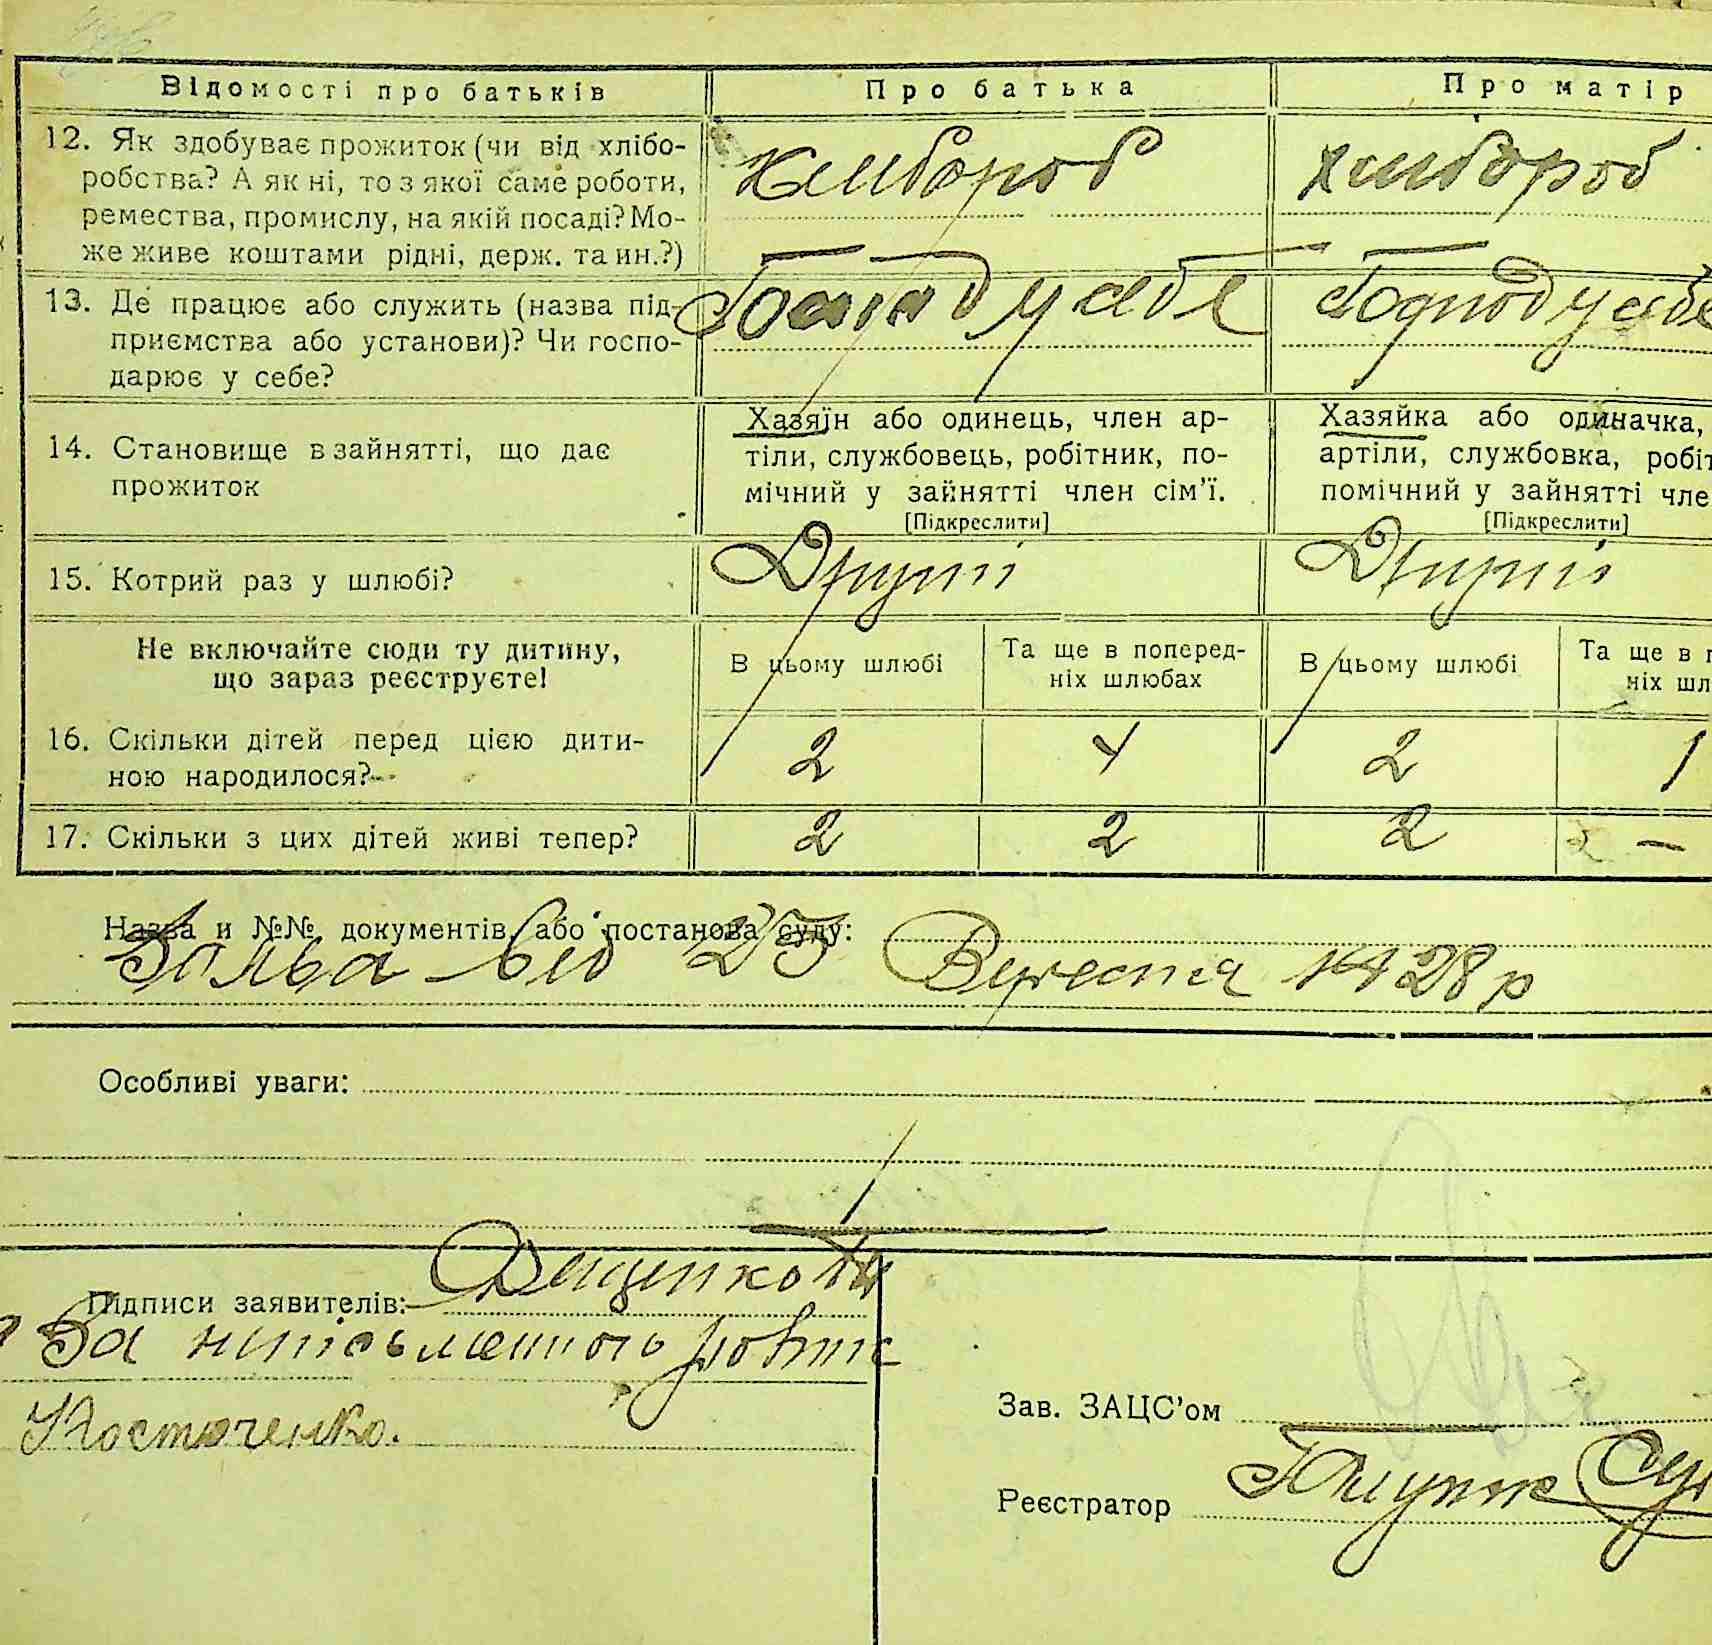 Відомості про батьків
Про батька
Про матір
12. Як здобуває прожиток (чи від хлібо-
робства? А як ні, то з якої саме роботи,
ремества, промислу, на якій посаді? Мо-
же живе коштами рідні, держ. та ин.?)
хлибороб
хлибороб
13. Де працює або служить (назва під-
приємства або установи)? Чи госпо-
дарює у себе?
у себе
Господ у себе
14. Становище в зайнятті, що дає
прожиток
Хазяїн або одинець, член ар-
тіли, службовець, робітник, по-
мічний у зайнятті член сім’ї.
[Підкреслити]
Хазяйка або одиначка,
артіли, службовка, робіт
помічний у зайнятті чле
[Підкреслити]
15. Котрий раз у шлюбі?
Другий
Другий
Не включайте сюди ту дитину,
що зараз реєструєте!
В цьому шлюбі
Та ще в поперед-
ніх шлюбах
В цьому шлюбі
Та ще в п
ніх шл
16. Скільки дітей перед цією дити-
ною народилося?
2
4
2
1
17. Скільки з цих дітей живі тепер?
2
2
2
—
Назва и №№ документів, або постанова суду:
Заява від 25 Вересня 1928 р
Особливі уваги:
Підписи заявителів:
Дещенко
За неписьменного
Костюченко.
Зав. ЗАЦС’ом
Реєстратор